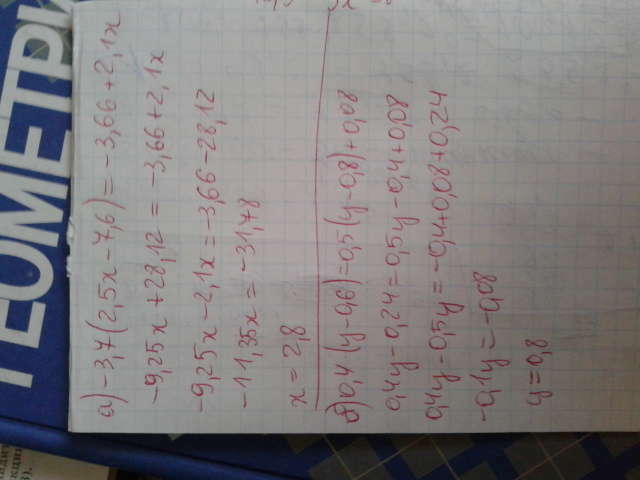 ГЕОМЕТРИ
а) -3,7(2,5x-7,6)=-3,66+2,1x
-9,25x+28,12=-3,66+2,1x
-9,25x-2,1x=-3,66-28,12
-11,35x=-31,78
x=2,8
б) 0,4(y-0,6)=0,5(y-0,8)+0,08
0,4y-0,24=0,5y-0,4+0,08
0,4y-0,5y=-0,4+0,08+0,24
-0,1y=-0,08
y=0,8